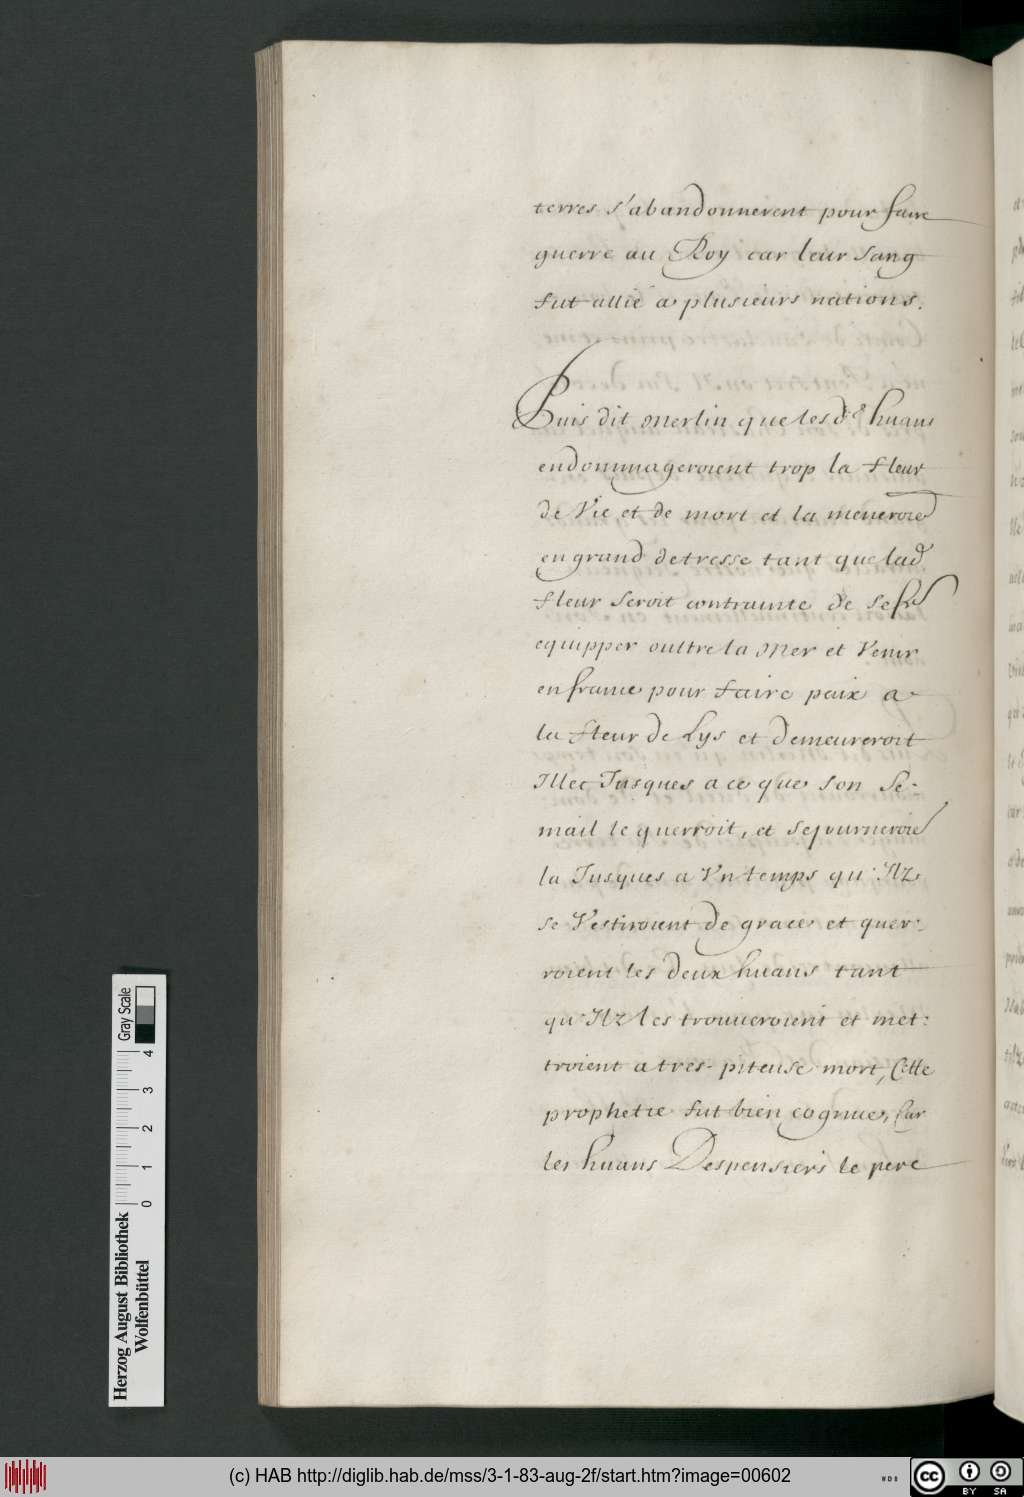 terres s'abandonnerent pour faire
guerre au Roy car leur sang
fut allié a plusieurs nations.
Puis dit Merlin que les d.^e huans
endommageroient trop la fleur
de Vie et de mort et la meneroie
en grand detresse tant que lad.
fleur seroit contrainte de se
equipper oultre la Mer et Venir
en france pour faire paix a
la fleur de Lys et demeureroit
Illec Jusques a ce que son se-
mail le querroit, et sejourneroie
la Jusques a Vn temps qu'Ilz
se Vestiroient de graces et quer-
roient les deux huans tant
qu'Ilz les trouveroient et met-
troient a tres-piteuse mort, Cette
prophetie fut bien cognue, Car
les huans Despensiers le pere
Gray Scale
0 1 2 3 4
Herzog August Bibliothek
Wolfenbüttel
(c) HAB http://diglib.hab.de/mss/3-1-83-aug-2f/start.htm?image=00602
WDB
cc BY SA